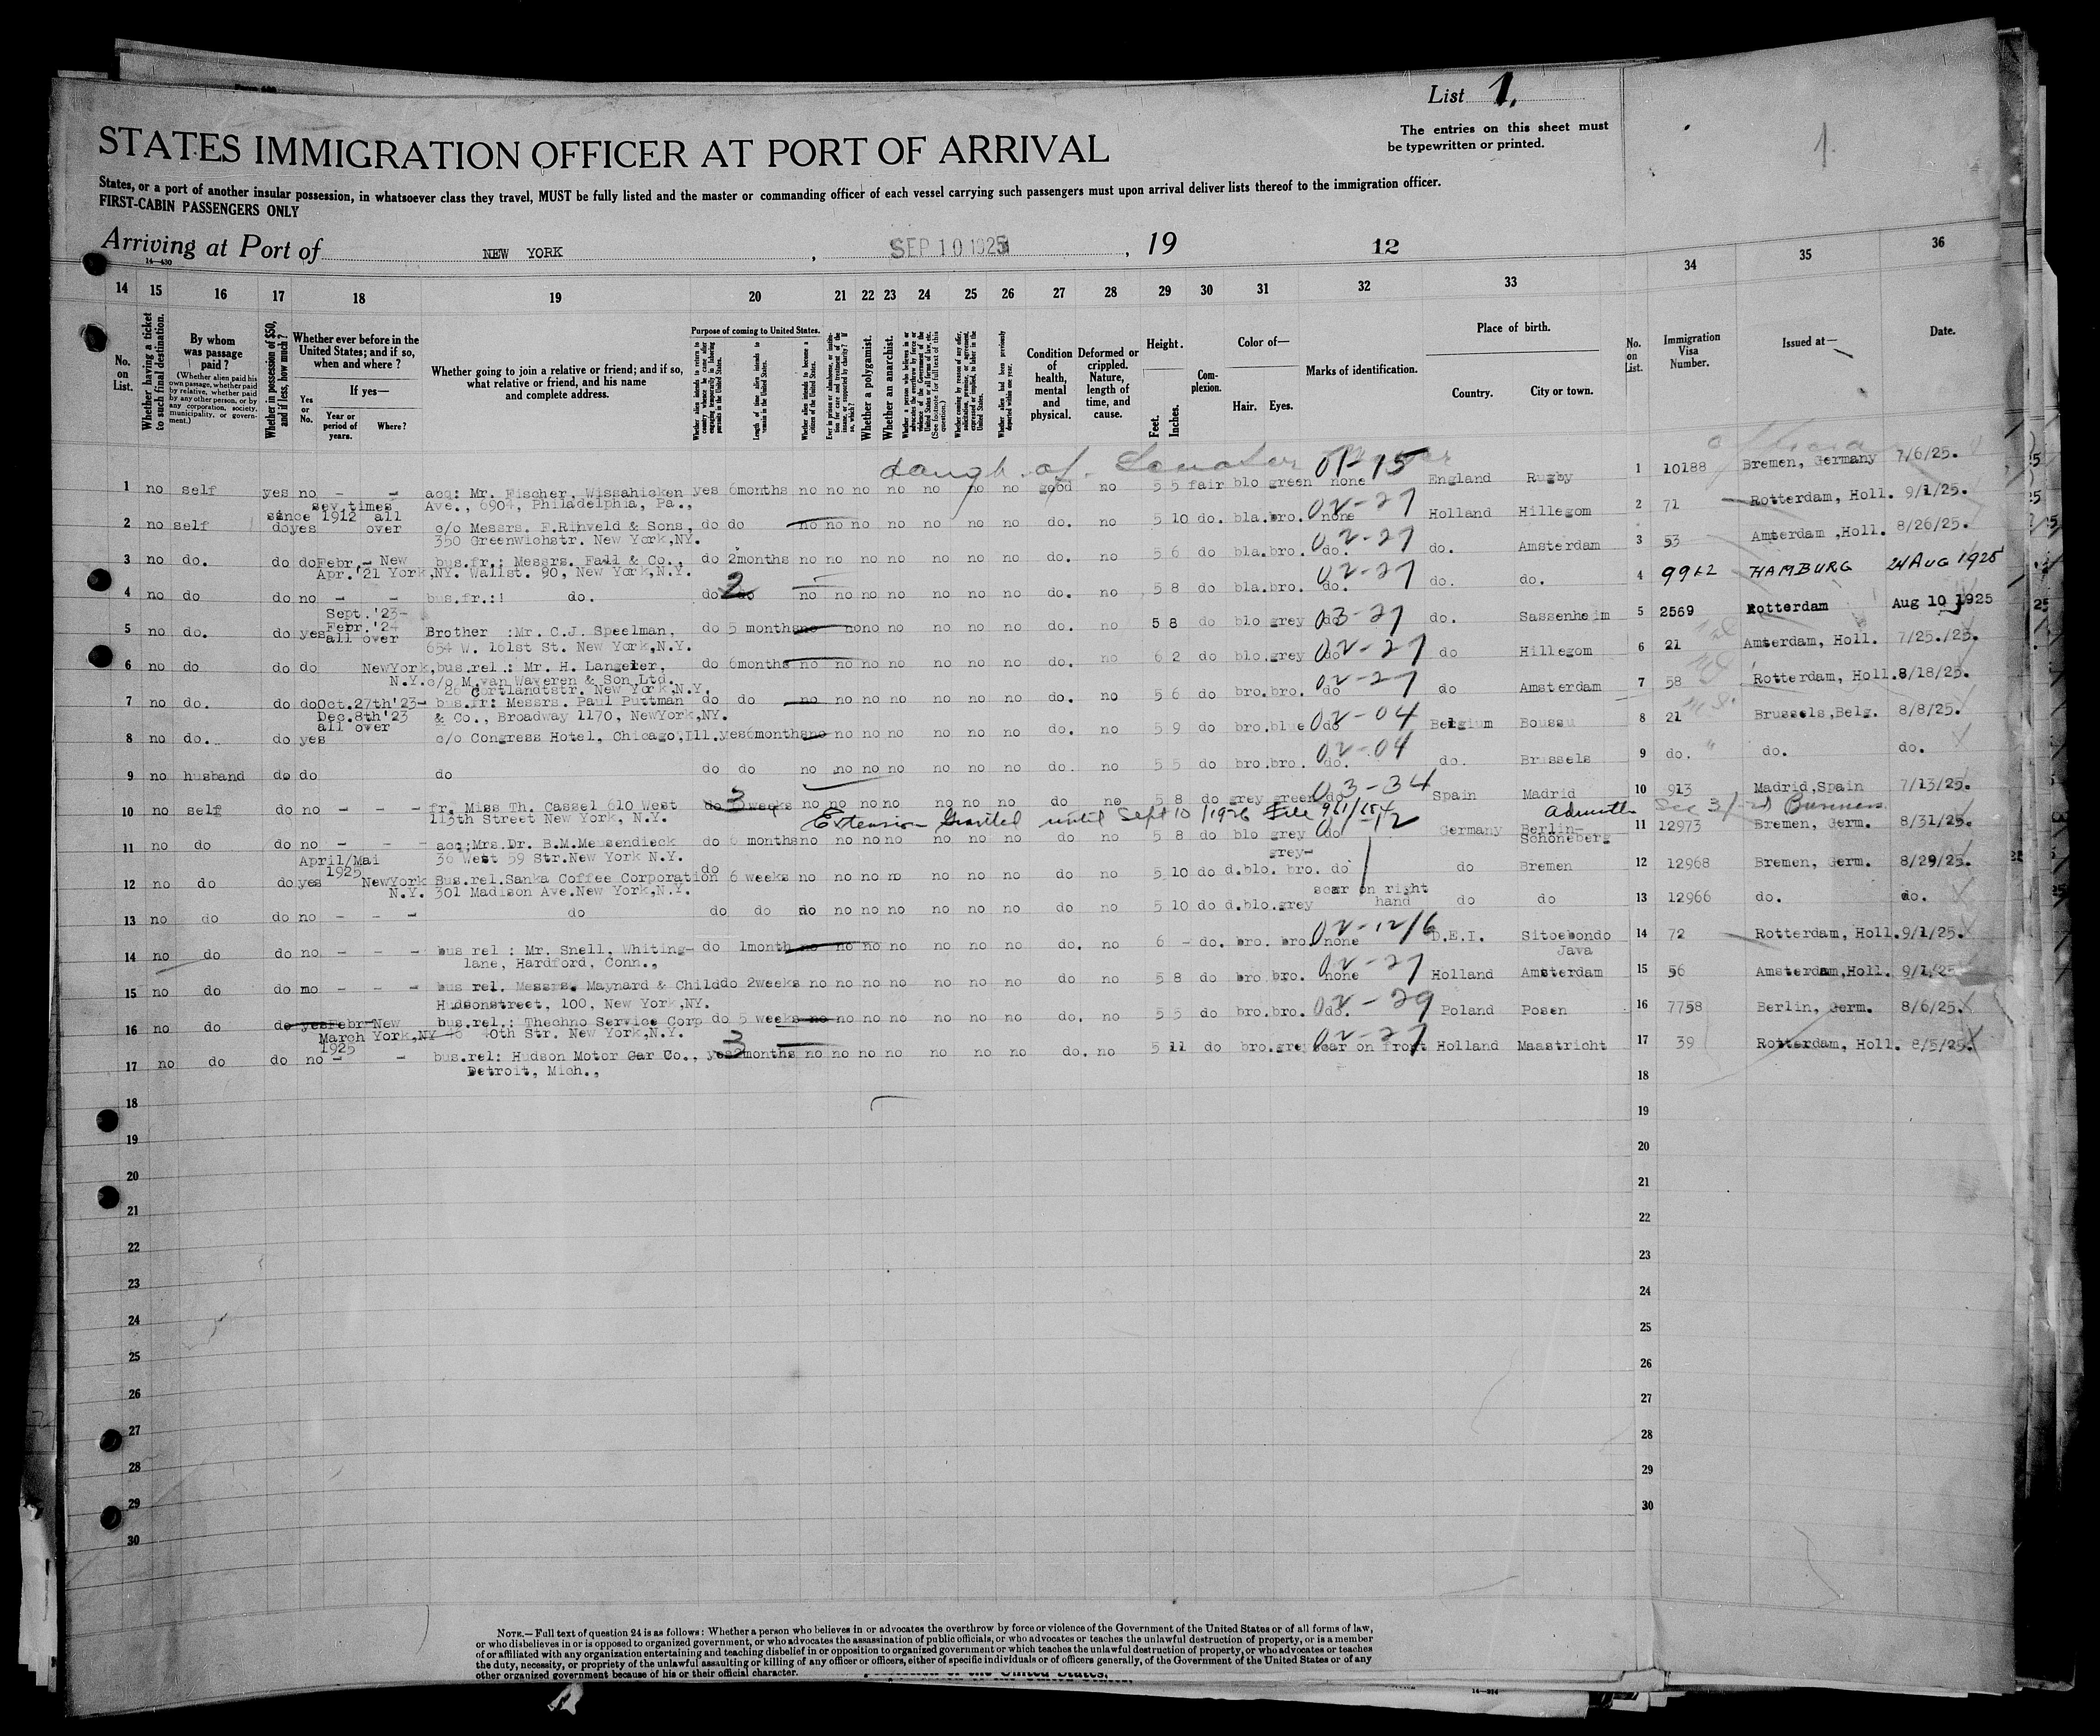 List 1.
The entries on this sheet must
be typewritten or printed.
1.
STATES IMMIGRATION OFFICER AT PORT OF ARRIVAL
States, or a port of another insular possession, in whatsoever class they travel, MUST be fully listed and the master or commanding officer of each vessel carrying such passengers must upon arrival deliver lists thereof to the immigration officer.
FIRST-CABIN PASSENGERS ONLY
Arriving at Port of NEW YORK , SEP 10 1925 , 19 12
14—430
14 15 16 17 18 19 20 21 22 23 24 25 26 27 28 29 30 31 32 33 34 35 36
No. on List.
Whether having a ticket to such final destination.
By whom was passage paid?
(Whether alien paid his own passage, whether paid by relative, whether paid by any other person, or by any corporation, society, municipality, or government.)
Whether in possession of $50, and if less, how much?
Whether ever before in the United States; and if so, when and where?
If yes—
Yes or No.
Year or period of years.
Where?
Whether going to join a relative or friend; and if so, what relative or friend, and his name and complete address.
Purpose of coming to United States.
Whether alien intends to return to country whence he came after engaging temporarily in laboring pursuits in the United States.
Length of time alien intends to remain in the United States.
Whether alien intends to become a citizen of the United States.
Whether a polygamist.
Whether an anarchist.
Condition of health, mental and physical.
Deformed or crippled. Nature, length of time, and cause.
Height.
Feet. Inches.
Complexion.
Color of—
Hair. Eyes.
Marks of identification.
Place of birth.
Country. City or town.
No. on List.
Immigration Visa Number.
Issued at—
Date.
daugh. of. Senator
01-15
1 no self yes no - - acq: Mr. Fischer, Wissahicken yes 6months no no no no no no no good no 5 5 fair blo green none England Rugby 1 10188 Bremen, Germany 7/6/25.
Ave., 6904, Philadelphia, Pa.,
sev.times
since 1912 all
over
02-27
2 no self do yes c/o Messrs. F.Rinveld & Sons, do do no no no no no no no do. no 5 10 do. bla.bro. none Holland Hillegom 2 71 Rotterdam, Holl. 9/1/25.
350 Greenwichstr. New York,NY.
02-27
3 no do. do do Febr.- New bus.fr.: Messrs. Fall & Co., do 2months no no no no no no no do. no 5 6 do bla.bro. do. do. Amsterdam 3 53 Amterdam ,Holl. 8/26/25.
Apr.'21 York,NY. Wallst. 90, New York,N.Y.
02-27
4 no do do no - - bus.fr.: do. do 2 do no no no no no no no do. no 5 8 do bla.bro. do. do. do. 4 9912 HAMBURG 24 AUG 1925
Sept.'23-
Febr.'24
all over
03-27
5 no do. do yes Brother :Mr. C.J. Speelman, do 5 months no no no no no no no do. no 5 8 do blo grey do do. Sassenheim 5 2569 Rotterdam Aug 10 1925
654 W. 161st St. New York,N.Y.
02-27
6 no do do do NewYork,bus.rel.: Mr. H. Langeler, do 6months no no no no no no no do. no 6 2 do blo.grey do do Hillegom 6 21 Amsterdam, Holl. 7/25./25.
N.Y.c/o M.van Waveren & Son,Ltd.
26 Cortlandtstr. New York,N.Y.
02-27
7 no do. do do Oct.27th'23- bus.fr: Messrs. Paul Puttman do do no no no no no no no do. no 5 6 do bro.bro. do do Amsterdam 7 58 Rotterdam, Holl. 8/18/25.
Dec.8th'23 & Co., Broadway 1170, NewYork,NY.
all over
02-04
8 no do. do yes c/o Congress Hotel, Chicago,Ill. yes 6months no no no no no no no do. no 5 9 do bro.blue do Belgium Boussu 8 21 Brussels,Belg. 8/8/25.
02-04
9 no husband do do do do do no no no no no no no do. no 5 5 do bro.bro. do. do. Brussels 9 do. do. do.
03-34
10 no self do no - - - fr. Miss Th. Cassel 610 West do 3 weeks no no no no no no no do no 5 8 do grey green do Spain Madrid 10 913 Madrid,Spain 7/13/25.
113th Street New York, N.Y.
Extension Granted until Sept 10 1926 File
Sec 3 Business
11 no do do no - - - acq;Mrs.Dr. B.M.Mensendieck do 6 months no no no no no no no do no 5 8 do blo grey do Germany Berlin-Schöneberg 11 12973 Bremen, Germ. 8/31/25.
36 West 59 Str.New York N.Y.
April/Mai
1925
12 no do do yes NewYork N.Y. Bus.rel.Sanka Coffee Corporation do 6 weeks no no no no no no no do no 5 10 do d.blo. grey-bro. do do Bremen 12 12968 Bremen, Germ. 8/29/25.
301 Madison Ave.New York,N.Y.
13 no do do no - - - do do do do no no no no no no do no 5 10 do d.blo.grey scar on right hand do do 13 12966 do. do.
02-12/6
14 no do do no - - - bus rel : Mr. Snell, Whiting- do 1month no no no no no no no do. no 6 - do. bro. bro. none D.E.I. Sitoebondo Java 14 72 Rotterdam, Holl. 9/1/25.
lane, Hardford, Conn.,
02-27
15 no do do mo - - - bus rel. Messrs. Maynard & Child do 2weeks no no no no no no no do no 5 8 do bro bro. none Holland Amsterdam 15 56 Amsterdam,Holl. 9/1/25
Hudsonstreet, 100, New York,NY.
02-29
16 no do do yes Febr-New bus.rel.: Thechno Service Corp do 5 weeks no no no no no no no do. no 5 5 do bro.bro. do. Poland Posen 16 7758 Berlin, Germ. 8/6/25.
March York,NY 40th Str. New York,N.Y.
1925
02-27
17 no do do no - - bus.rel: Hudson Motor Car Co., yes 3 months no no no no no no no do. no 5 11 do bro.grey scar on front Holland Maastricht 17 39 Rotterdam, Holl. 8/5/25.
Detroit, Mich.,
18 18
19 19
20 20
21 21
22 22
23 23
24 24
25 25
26 26
27 27
28 28
29 29
30 30
NOTE.—Full text of question 24 is as follows: Whether a person who believes in or advocates the overthrow by force or violence of the Government of the United States or of all forms of law,
or who disbelieves in or is opposed to organized government, or who advocates the assassination of public officials, or who advocates or teaches the unlawful destruction of property, or is a member
of or affiliated with any organization entertaining and teaching disbelief in or opposition to organized government or which teaches the unlawful destruction of property, or who advocates or teaches
the duty, necessity, or propriety of the unlawful assaulting or killing of any officer or officers, either of specific individuals or of officers generally, of the Government of the United States or of any
other organized government because of his or their official character.